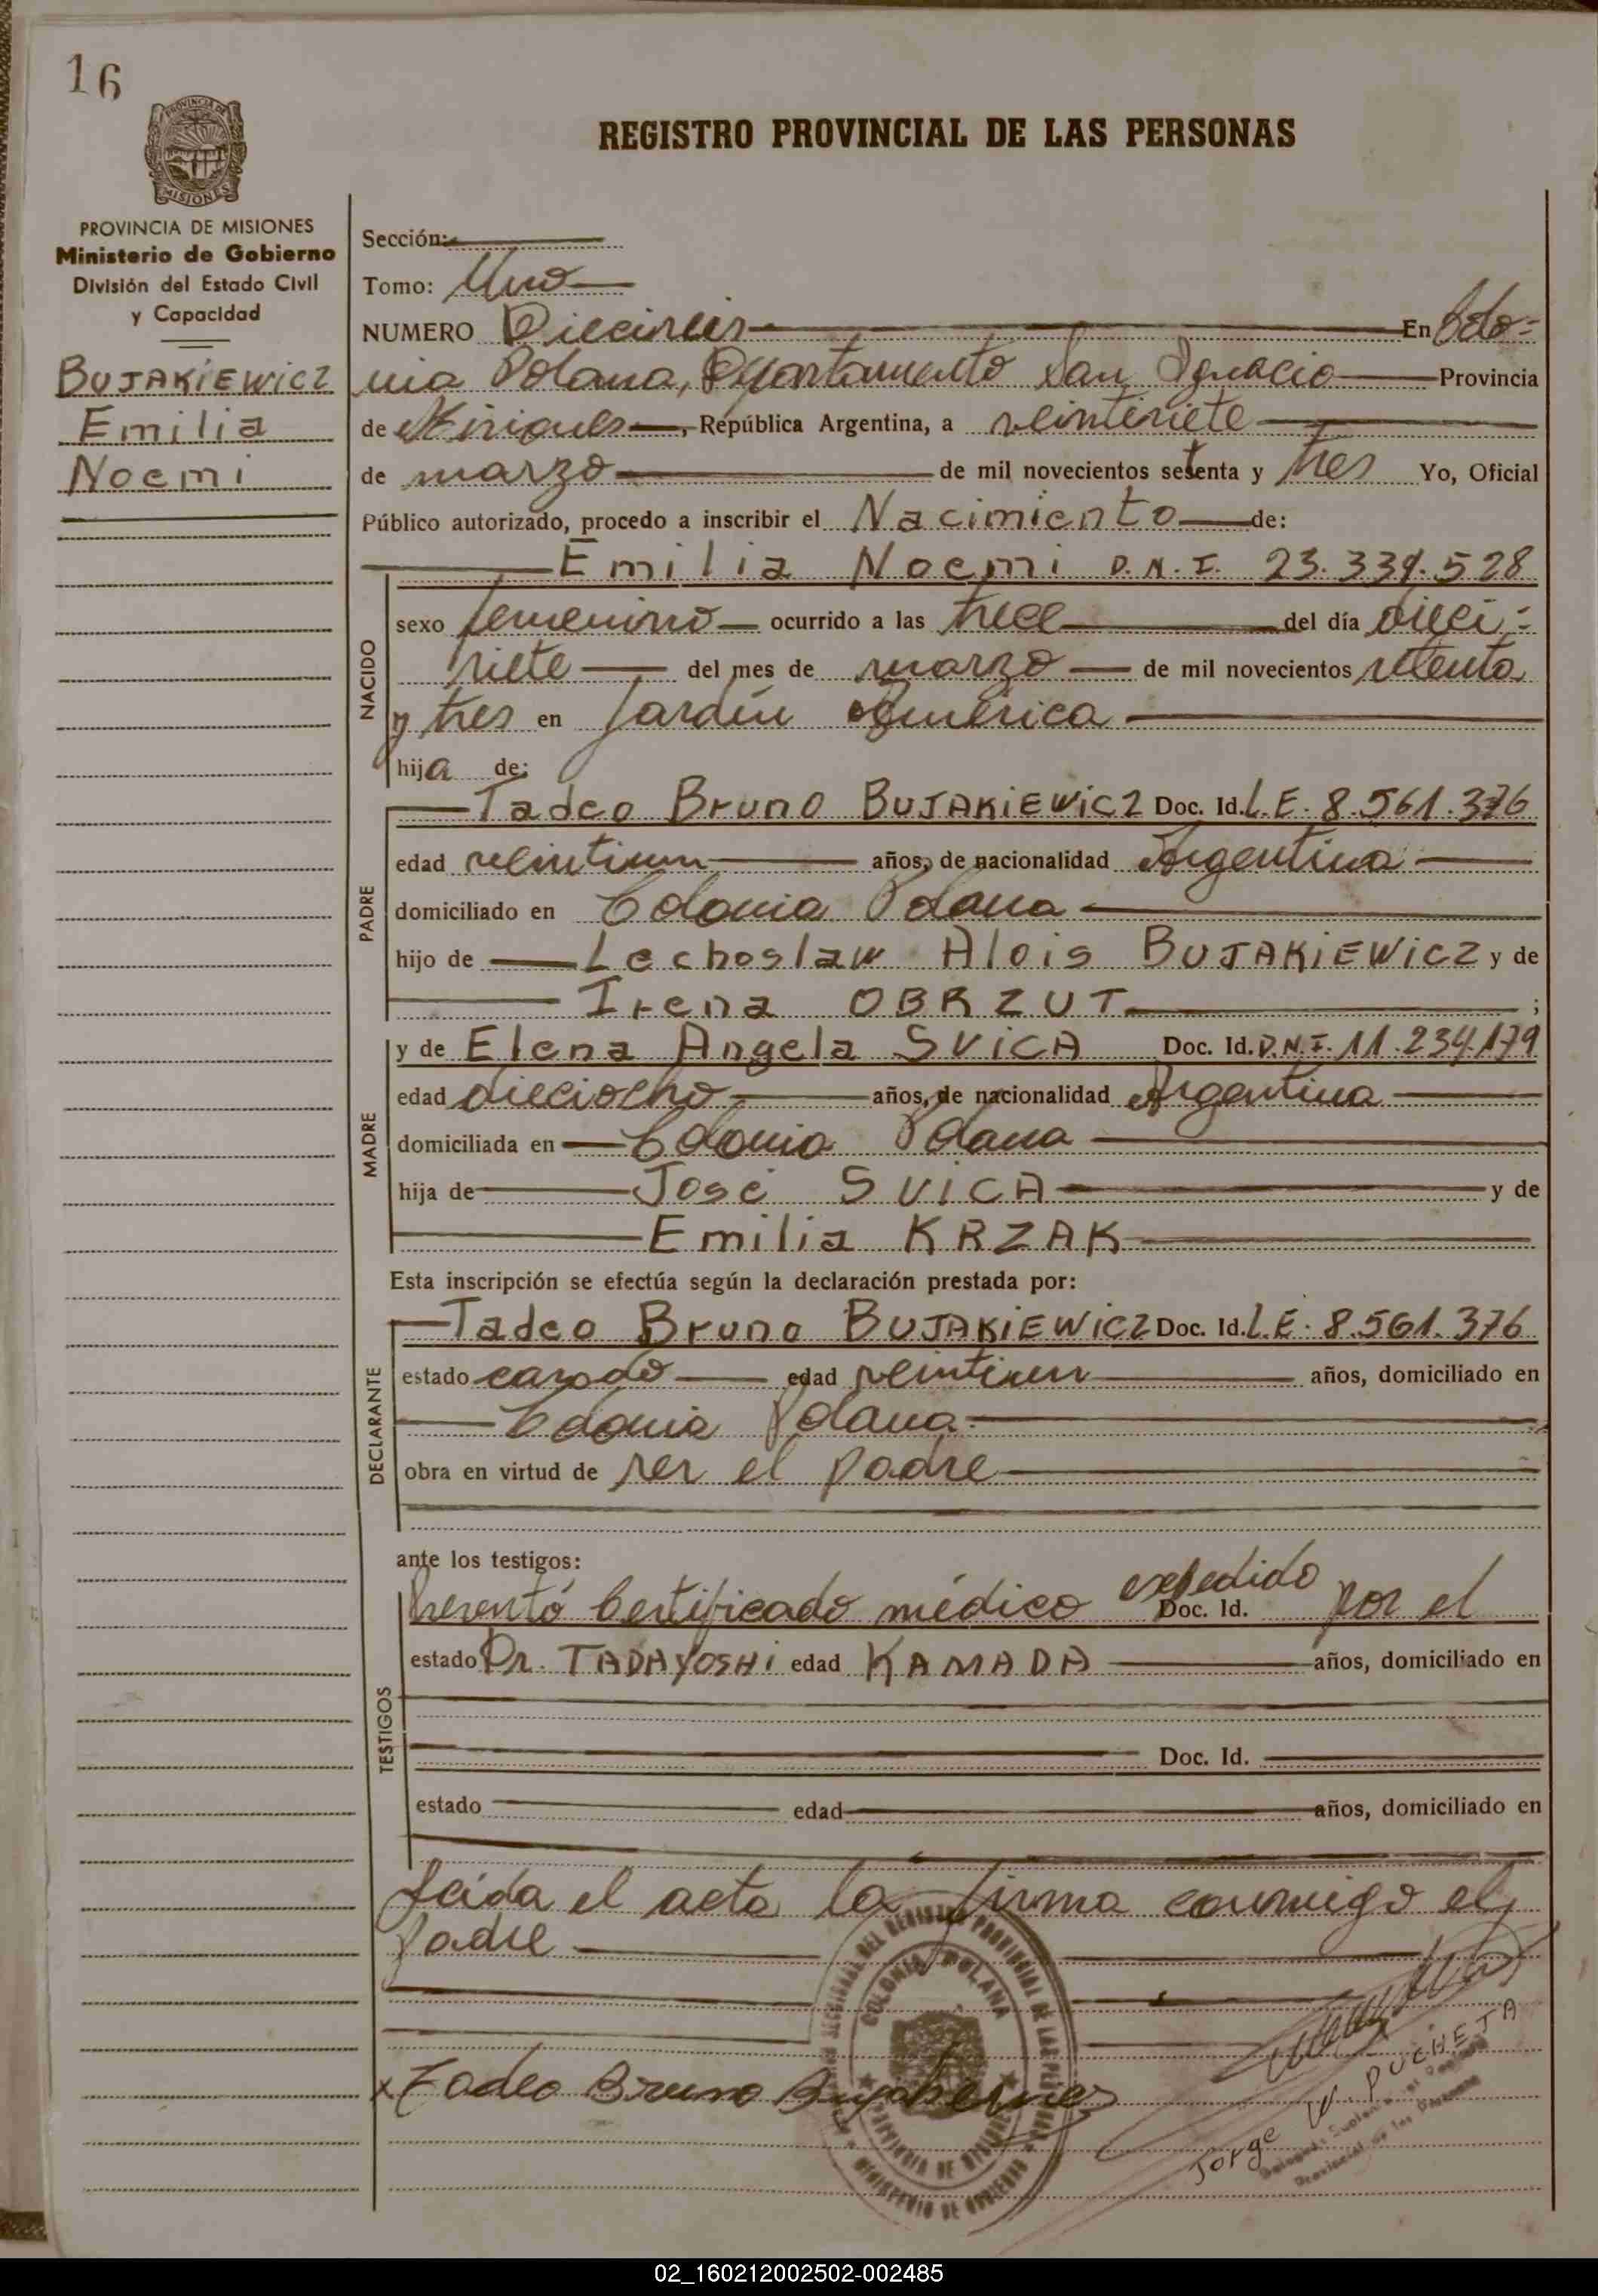 16
PROVINCIA DE
MISIONES
REGISTRO PROVINCIAL DE LAS PERSONAS
PROVINCIA DE MISIONES
Ministerio de Gobierno
División del Estado Civil
y Capacidad
BUJAKIEWICZ
Emilia
Noemi
Sección:
Tomo: Uno
NUMERO Dieciseis En Colo=
nia Polana, Departamento San Ignacio Provincia
de Misiones, República Argentina, a veintisiete
de marzo de mil novecientos setenta y tres Yo, Oficial
Público autorizado, procedo a inscribir el Nacimiento de:
Emilia Noemi D.N.I. 23.339.528
NACIDO
sexo femenino ocurrido a las trece del día dieci=
siete del mes de marzo de mil novecientos setenta
y tres en Jardín América
hija de:
PADRE
Tadeo Bruno BUJAKIEWICZ Doc. Id. L.E. 8.561.376
edad veintiun años, de nacionalidad Argentina
domiciliado en Colonia Polana
hijo de Lechoslaw Alois BUJAKIEWICZ y de
Irena OBRZUT ;
MADRE
y de Elena Angela SVICA Doc. Id. D.N.I. 11.234.179
edad dieciocho años, de nacionalidad Argentina
domiciliada en Colonia Polana
hija de José SVICA y de
Emilia KRZAK
Esta inscripción se efectúa según la declaración prestada por:
DECLARANTE
Tadeo Bruno BUJAKIEWICZ Doc. Id. L.E. 8.561.376
estado casado edad veintiun años, domiciliado en
Colonia Polana
obra en virtud de ser el padre
ante los testigos:
TESTIGOS
Presentó Certificado médico expedido Doc. Id. por el
estado Dr. TADAYOSHI edad KAMADA años, domiciliado en
Doc. Id.
estado edad años, domiciliado en
Leída el acta la firma conmigo el
padre
COLONIA POLANA
x Tadeo Bruno
Jorge W. PUCHETA
Provincial de las Personas
02_160212002502-002485